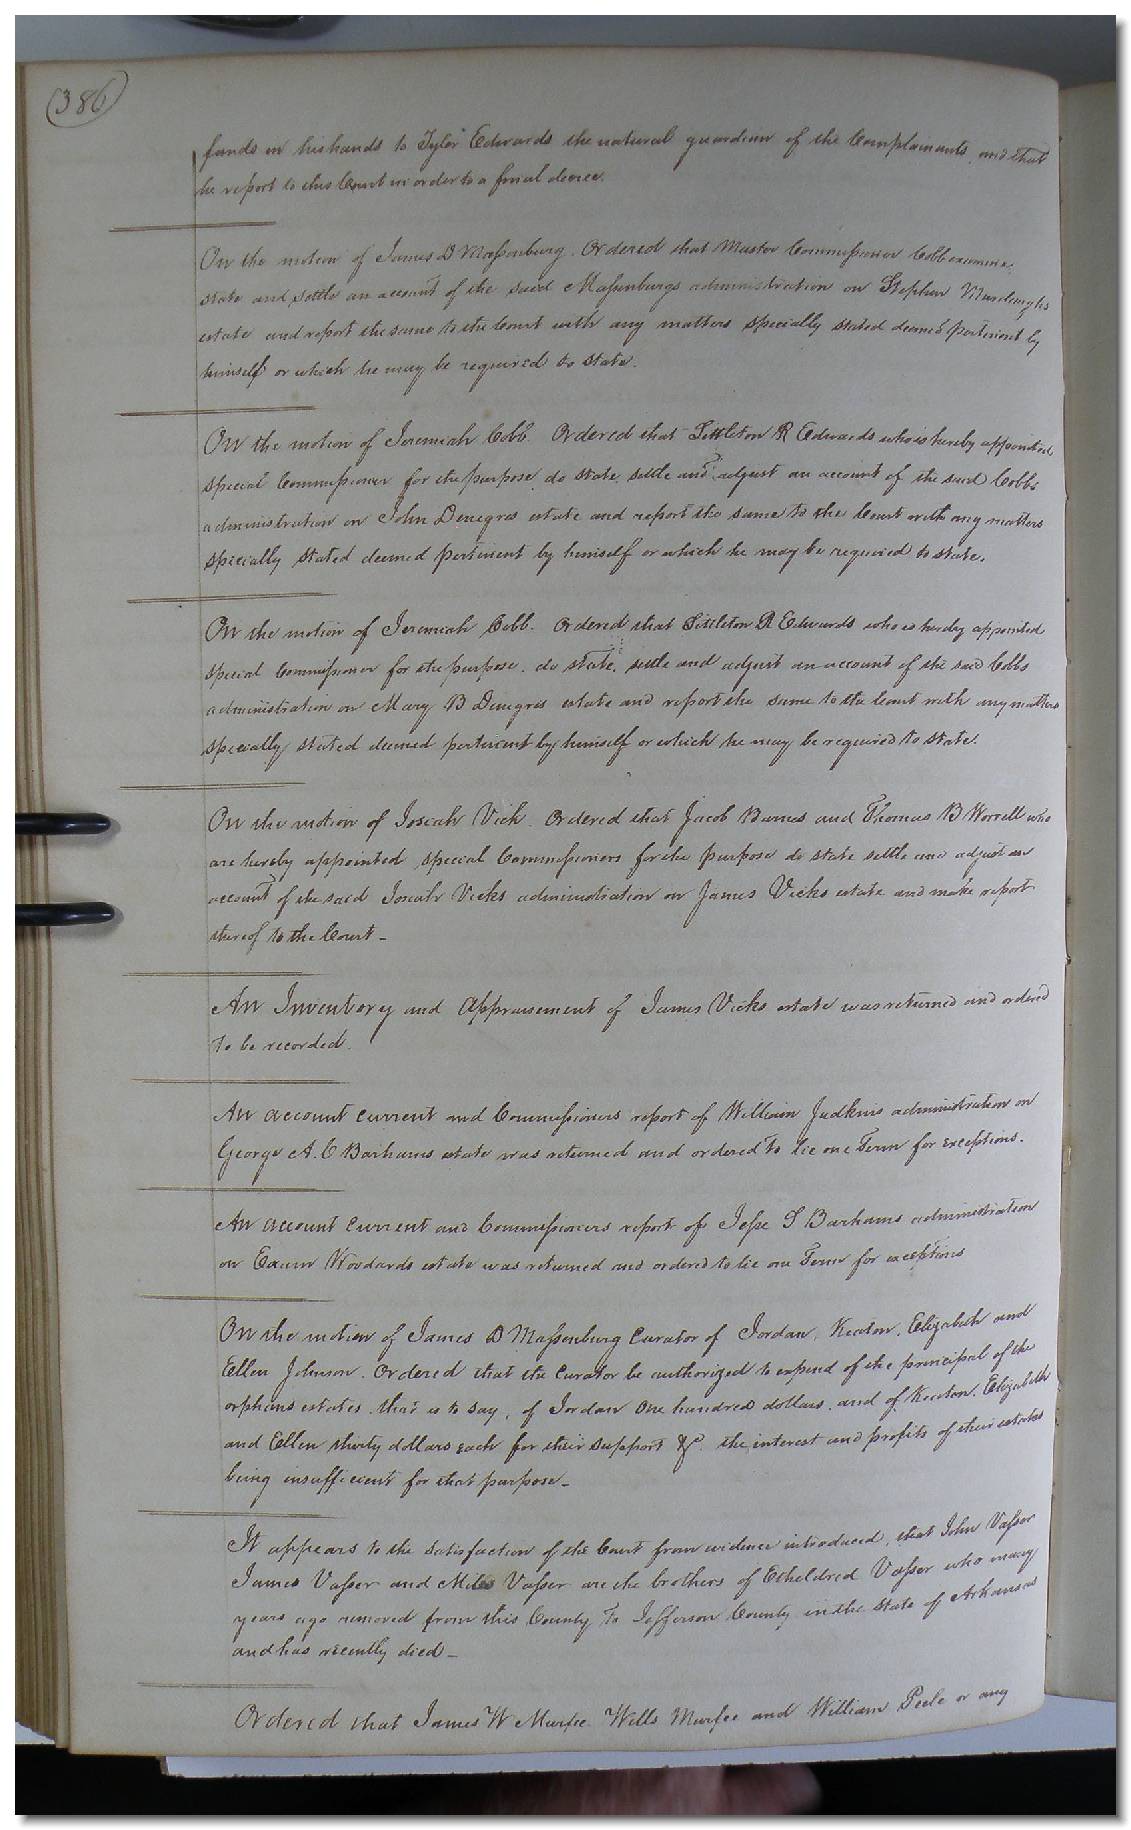 (386)
funds in his hands to Tyler Edwards the natural guardian of the Complainants, and that
he report to this Court in order to a final decree.
On the motion of James D Massenburg. Ordered that Master Commissioner Cobb examine,
state and settle an account of the said Massenburgs administration on Stephen
estate and report the same to the Court with any matters specially stated deemed pertinent by
himself or which he may be required to state.
On the motion of Jeremiah Cobb. Ordered that Littleton R Edwards who is hereby appointed
special Commissioner for the purpose do state, settle and adjust an account of the said Cobbs
administration on John Denegres estate and report the same to the Court with any matters
specially stated deemed pertinent by himself or which he may be required to state.
On the motion of Jeremiah Cobb. Ordered that Littleton R Edwards who is hereby appointed
special Commissioner for the purpose, do state, settle and adjust an account of the said Cobbs
administration on Mary B Denegres estate and report the same to the Court with any matters
specially stated deemed pertinent by himself or which he may be required to state.
On the motion of Josiah Vick. Ordered that Jacob Barnes and Thomas B Worrell who
are hereby appointed special Commissioners for the purpose do state settle and adjust an
account of the said Josiah Vicks administration on James Vicks estate and make report
thereof to the Court -
An Inventory and Appraisement of James Vicks estate was returned and ordered
to be recorded.
An account current and Commissioners report of William Judkins administration on
George A. C Barhams estate was returned and ordered to lie one Term for exceptions.
An account current and Commissioners report of Jesse S Barhams administration
on Exum Woodards estate was returned and ordered to lie one Term for exceptions
On the motion of James D Massenburg Curator of Jordan, Keaton, Elizabeth and
Ellen Johnson. Ordered that the Curator be authorized to expend of the principal of the
orphans estates, that is to say, of Jordan one hundred dollars, and of Keaton, Elizabeth
and Ellen thirty dollars each for their support &c. the interest and profits of their estates
being insufficient for that purpose -
It appears to the satisfaction of the Court from evidence introduced, that John Vasser
James Vasser and Miles Vasser are the brothers of Etheldred Vasser who many
years ago removed from this County to Jefferson County in the State of Arkansas
and has recently died -
Ordered that James W Murfee. Wills Murfee and William Peele or any